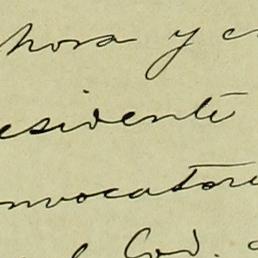 hora y e
esidente
nvocatori
Cod.